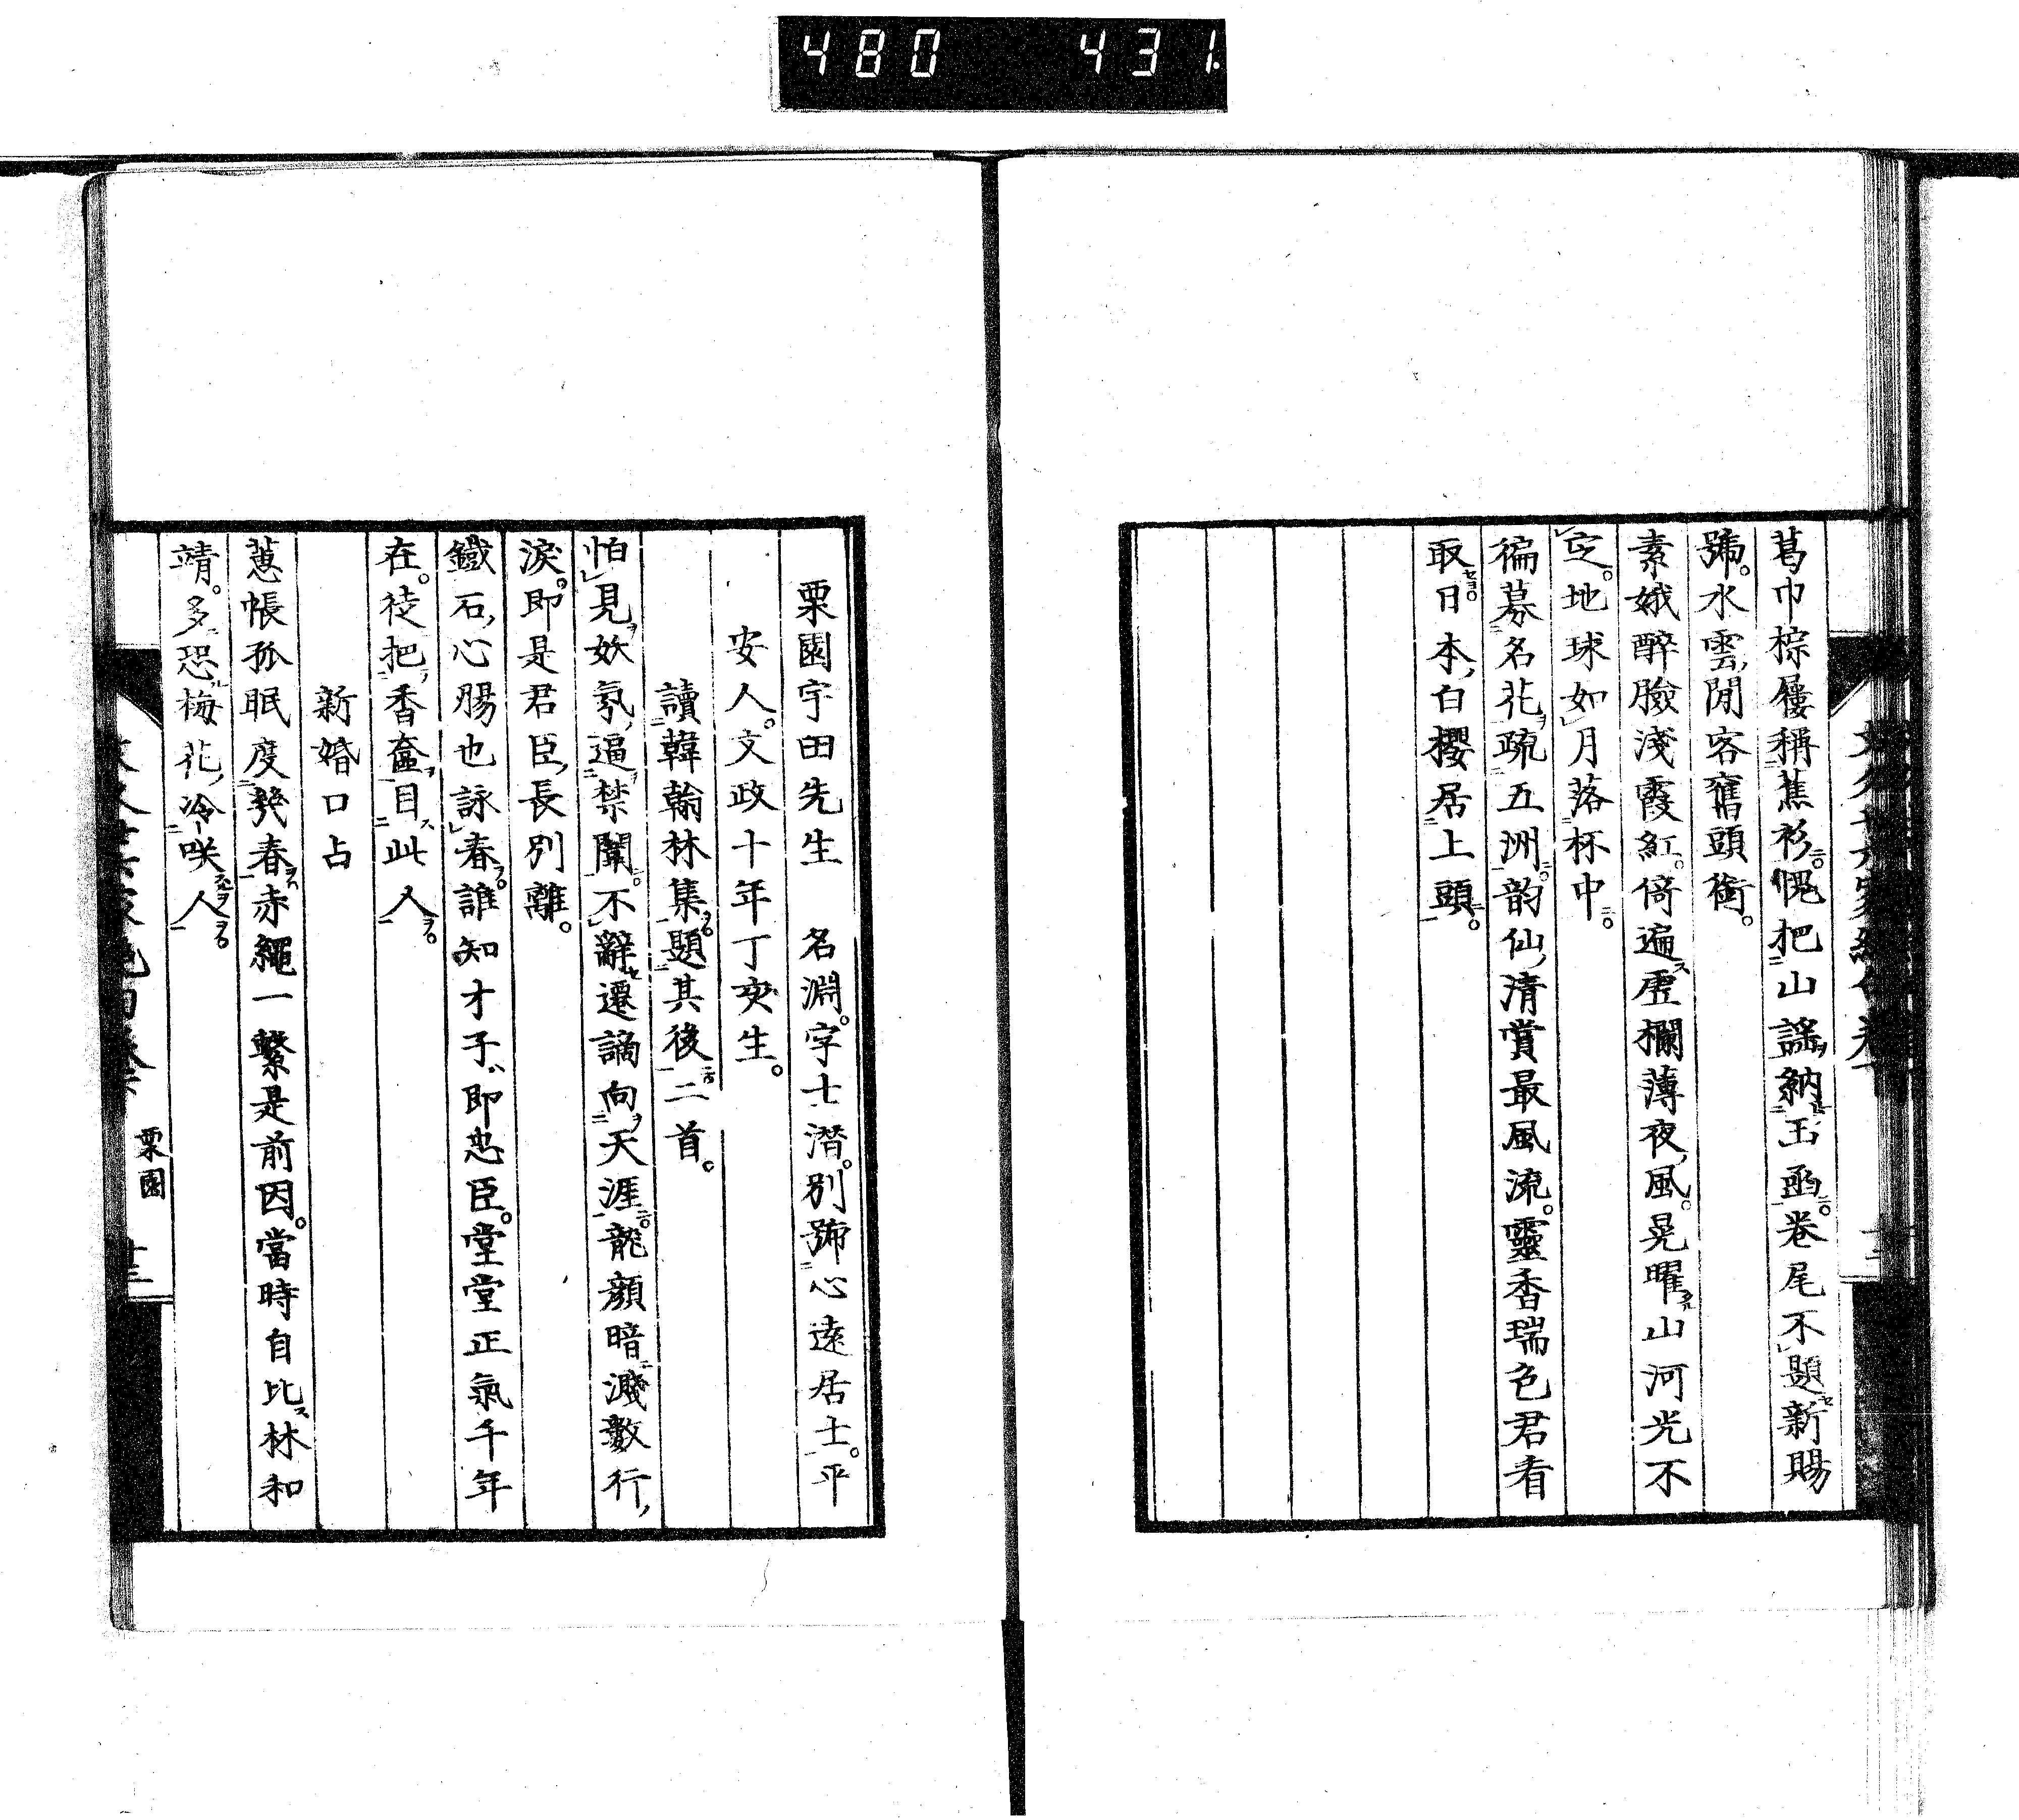 480 431
葛巾椶屨稱蕉衫。愧把山謡納玉凾。卷尾不題新賜
號。水雲閒客舊頭銜。
素娥醉臉淺霞紅。倚遍虚欄薄夜風。晃曜山河光不
定。地球如月落杯中。
徧募名花疏五洲。韵仙清賞最風流。靈香瑞色君看
取。日本白櫻居上頭。
栗園宇田先生 名淵。字士潛。別號心遠居士。平
安人。文政十年丁亥生。
讀韓翰林集。題其後。二首。
怕見妖氛逼禁闈。不辭遷謫向天涯。龍顔暗濺數行
淚。即是君臣長別離。
鐵石心腸也詠春。誰知才子即忠臣。堂堂正氣千年
在。徒把香奩目此人。
新婚口占
蕙帳孤眠度幾春。赤繩一繫是前因。當時自比林和
靖。多恐梅花冷咲人。
栗園
十三